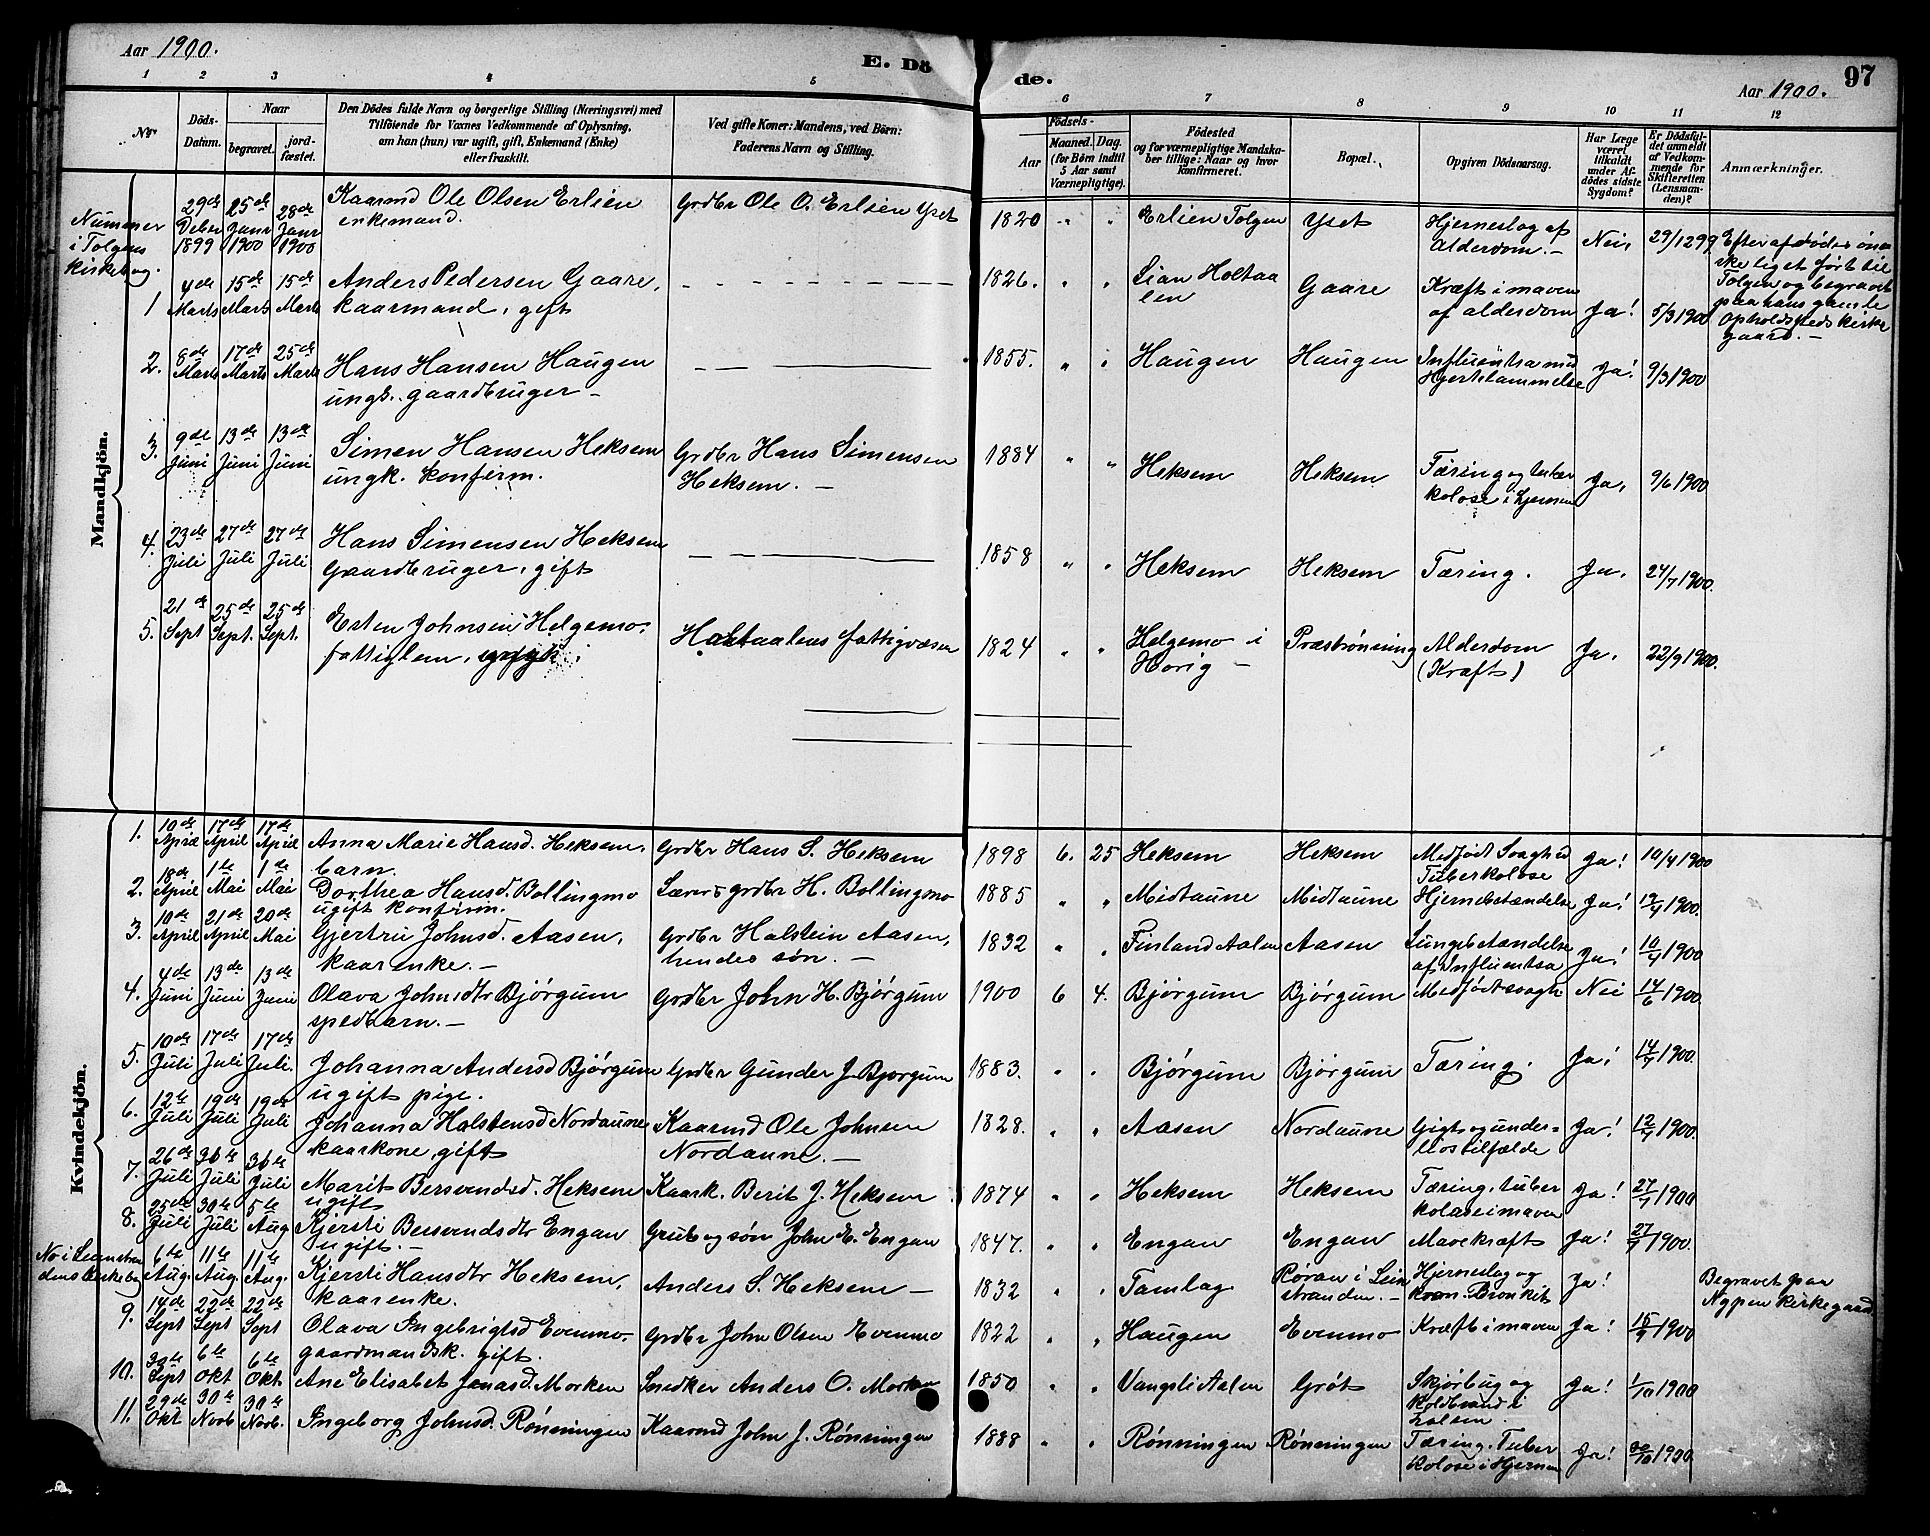 Aar 1900.
E. Dö
de.
Aar 1900.
97
1 2 3 4 5 6 7 8 9 10 11 12
No
Döds-Datum.
Naar
begravet.
jord-fæstet.
Den Dödes fulde Navn og borgerlige Stilling (Næringsvei) med
Tilföiende for Voxnes Vedkommende af Oplysning,
om han (hun) var ugift, gift, Enkemand (Enke)
eller fraskilt.
Ved gifte Koner: Mandens, ved Börn:
Faderens Navn og Stilling.
Födsels-
Aar
Maaned.
Dag.
(for Börn indtil
5 Aar samt
Værnepligtige).
Födested
og for værnepligtige Mandska-
ber tillige: Naar og hvor
konfirmeret.
Bopæl.
Opgiven Dödsaarsag.
Har Læge
været
tilkaldt
under Af-
dödes sidste
Sygdom?
Er Dödsfal-
det anmeldt
af Vedkom-
mende for
Skifteretten
(Lensman-
den)?
Anmærkninger.
Mandkjön.
Nummer
i Tolgens
kirkebog.
29de Deber 1899 25de Janr 1900 28de Janr 1900 Kaarmd Ole Olsen Erlien enkemand. Grdbr Ole O. Erlien Yset 1820 " " Erlien Tolgen Yset Hjerneslag af Alderdom. Nei, 29/12 99 Efter afdødes ønske liget ført til Tolgen og begravet paa hans gamle Opholdssteds kirkegaard.
1 4de Marts 15de Marts 15de Marts Anders Pedersen Gaare, kaarmand, gift 1826. " " Gaare Kræft i maven af alderdom Ja! 5/3 1900
2. 8de Marts 17de Marts 25de Marts Hans Hansen Haugen ungk. gaardbruger 1855. " " Haugen Haugen Influentsa med Hjertelammelse Ja! 9/3 1900
3. 9de Juni 13de Juni 13de Juni Simen Hansen Heksem ungk. konfirm. Grdbr Hans Simensen Heksem. 1884 " " Heksem Heksem Tæring og tuberkolose i hjernen Ja, 9/6 1900
4. 23de Juli 27de Juli 27de Juli Hans Simensen Heksem Gaardbruger, gift 1858 " " Heksem Heksem Tæring. Ja, 24/7 1900.
5. 21de Sept 25de Sept. 25de Sept. Esten Johnsen Helgemo. fattiglem, Holtaalens fattigvæsen 1824 " " Helgemo i Horig Præstrønning Alderdom (Kræft) Ja, 22/9 1900.
Kvindekjön.
1. 10de April 17de April 17de April Anna Marie Hansd. Heksem, barn. Grdbr Hans S. Heksem 1898 6. 25 Heksem Heksem Medfødt Svaghed Tuberkolose Ja! 10/4 1900
2. 18de April 1te Mai 1te Mai Dorthea Hansd. Bollingmo ugift konfirm. Lærer & grdbr H. Bollingmo 1885 " " Midtaune Midtaune Hjernebetændelse Ja! 19/4 1900.
3. 10de April 21de April 20de Mai Gjertru Johnsd. Aasen, kaarenke. Grdbr Halstein Aasen, hendes søn. 1832 " " Finland Aalen Aasen Lungebetændelse af Influentsa Ja! 10/4 1900
4. 4de Juni 13de Juni 13de Juni Olava Johnsdtr Bjørgum spedbarn. Grdbr John H. Bjørgum 1900 6 4. Bjørgum Bjørgum Medfødt svagh Nei 14/6 1900.
5. 10de Juli 17de Juli 17de Juli. Johanna Andersd Bjørgum ugift pige. Grdbr Gunder J. Bjørgum 1883. " " Bjørgum Bjørgum Tæring. Ja! 14/7 1900.
6. 12te Juli 19de Juli 19de Juli Johanna Halstensd Nordaune kaarkone, gift Kaarmd Ole Johnsen Nordaune. 1828. " " Aasen Nordaune Gigt og underlivstilfælde Ja! 12/7 1900.
7. 26de Juli 30te Juli 30te Juli Marit Bersvendsd. Heksem ugift Kaark. Berit J. Heksem 1874 " " Heksem Heksem Tæring, tuberkolose i maven Ja! 27/7 1900
8. 25de Juli 30te Juli 5te Aug Kjersti Bersvendsdtr Engan ugift. Grub. og søn John E. Engan 1847. " " Engan Engan Mavekræft Ja! 27/7 1900.
No i Leinstrandens kirkebog 6te Aug. 11te Aug. 11te Aug. Kjersti Hansdtr Heksem, kaarenke. Anders S. Heksem 1832 " " Tamlag Røran i Leinstranden. Hjerneslag og kron. Bronkit Ja! Begravet paa Nypen kirkegaard
9. 14de Sept 22de Sept 22de Sept Olava Ingebrigtsd Evenmo. gaardmandsk. gift. Grdbr John Olsen Evenmo 1822 " " Haugen Evenmo Kræft i maven Ja! 15/9 1900
10. 30te Sept 6te Okt 6te Okt. Ane Elisabet Jonasd. Morken Snedker Anders O. Morken 1850 " " Vangsli Aalen Grøt Skjørbug og Koldbrand i Ja! 1/10 1900
11. 29de Okt 30te Novb 30te Novb. Ingeborg Johnsd. Rønningen Kaarmd John J. Rønningen 1888 " " Rønningen Rønningen Tæring. Tuberkolose i Hjernen Ja! 30/10 1900